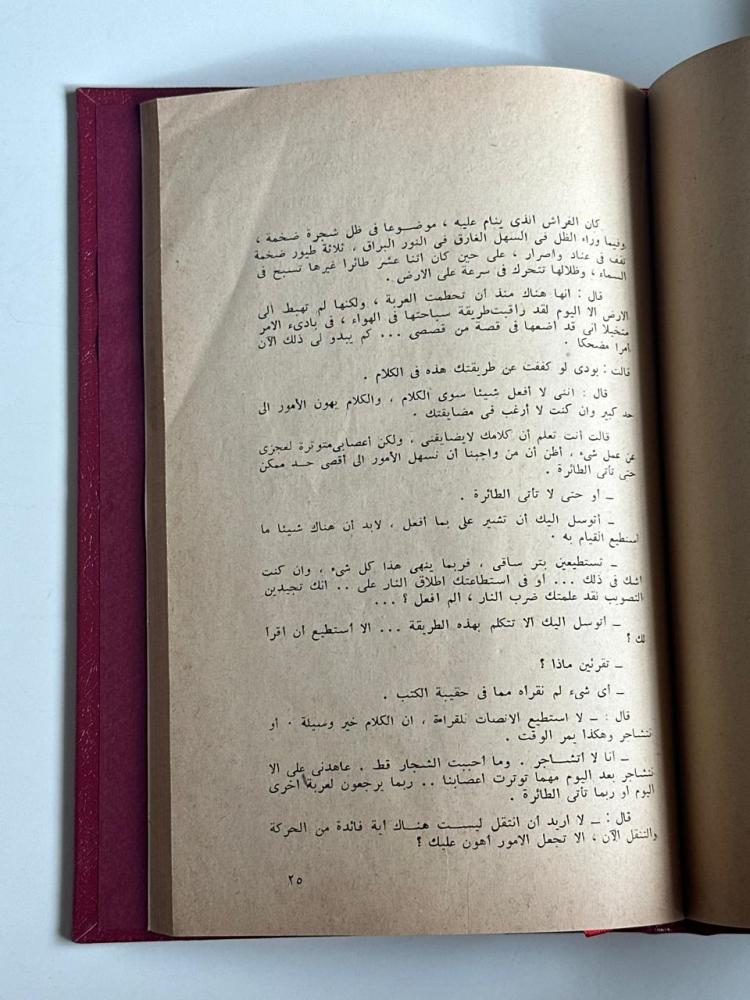 كان الفراش الذى ينام عليه ، موضوعا فى ظل شجرة ضخمة ،
وفيما وراء الظل فى السهل الغارق فى النور البراق ، ثلاثة طيور ضخمة
تقف فى عناد واصرار ، على حين كان اثنا عشر طائرا غيرها تسبح فى
السماء ، وظلالها تتحرك فى سرعة على الارض .
قال : انها هناك منذ أن تحطمت العربة ، ولكنها لم تهبط الى
الارض الا اليوم لقد راقبت طريقة سباحتها فى الهواء ، فى بادىء الامر
متخيلا انى قد اضعها فى قصة من قصصى ... كم يبدو لى ذلك الآن
أمرا مضحكا .
قالت : بودى لو كففت عن طريقتك هذه فى الكلام .
قال : اننى لا أفعل شيئا سوى الكلام ، والكلام يهون الأمور الى
حد كبير وان كنت لا أرغب فى مضايقتك .
قالت أنت تعلم أن كلامك لايضايقنى ، ولكن أعصابى متوترة لعجزى
عن عمل شىء ، أظن أن من واجبنا أن نسهل الأمور الى أقصى حد ممكن
حتى تأتى الطائرة .
ـ أو حتى لا تأتى الطائرة .
ـ أتوسل اليك أن تشير على بما أفعل ، لابد أن هناك شيئا ما
استطيع القيام به .
ـ تستطيعين بتر ساقى ، فربما ينهى هذا كل شىء ، وان كنت
اشك فى ذلك ... أو فى استطاعتك اطلاق النار على .. انك تجيدين
التصويب نقد علمتك ضرب النار ، الم افعل ؟ ...
ـ أتوسل اليك الا تتكلم بهذه الطريقة ... الا أستطيع أن اقرأ
لك ؟
ـ تقرئين ماذا ؟
ـ أى شىء لم نقرأه مما فى حقيبة الكتب .
قال : ـ لا استطيع الانصات للقراءة ، ان الكلام خير وسيلة . أو
نتشاجر وهكذا يمر الوقت .
ـ أنا لا اتشاجر . وما احببت الشجار قط . عاهدنى على الا
نتشاجر بعد اليوم مهما توترت اعصابنا .. ربما يرجعون لعربة اخرى
اليوم أو ربما تأتى الطائرة .
قال : ـ لا اريد أن انتقل ليست هناك اية فائدة من الحركة
والتنقل الآن ، الا تجعل الامور أهون عليك ؟
٢٥